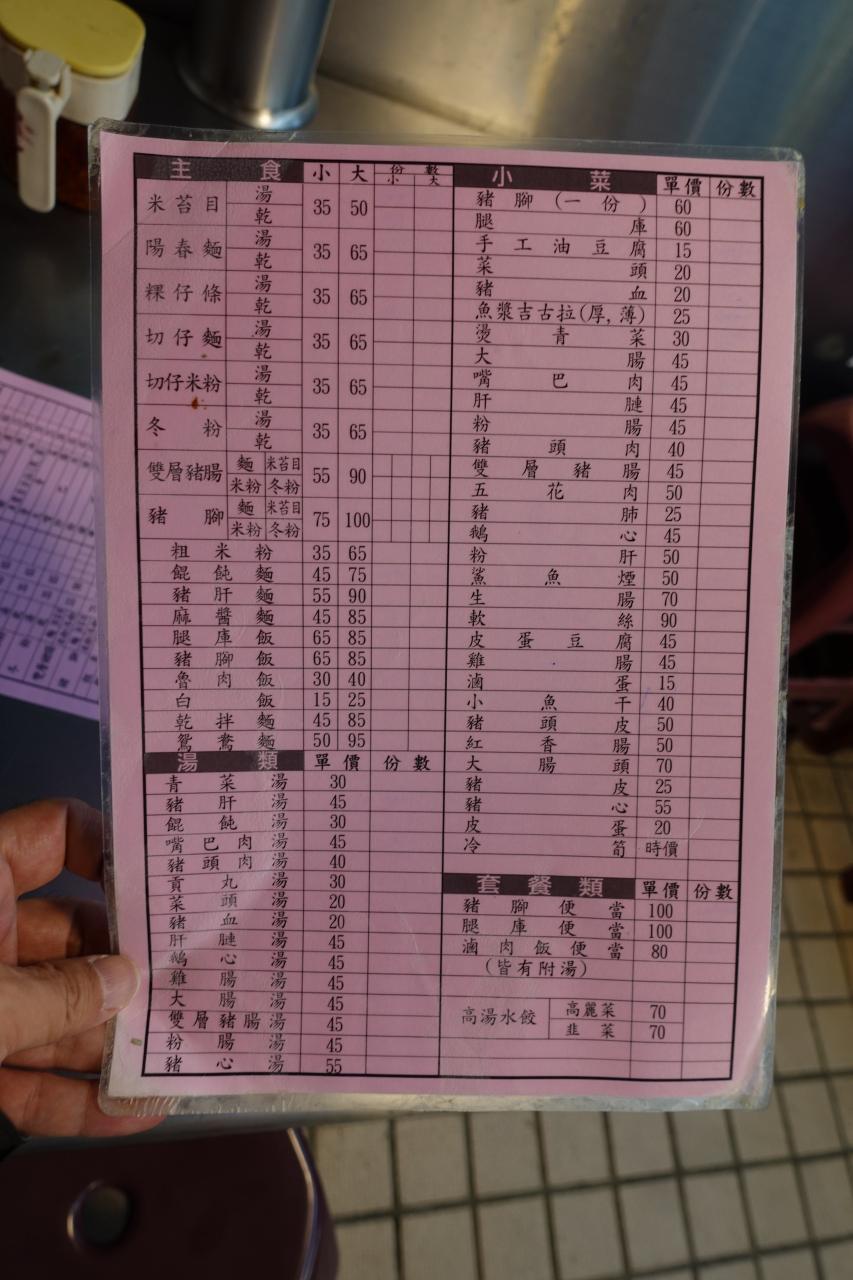 主食 小 大 份數 小 大
米苔目 湯 乾 35 50
陽春麵 湯 乾 35 65
粿仔條 湯 乾 35 65
切仔麵 湯 乾 35 65
切仔米粉 湯 乾 35 65
冬粉 湯 乾 35 65
雙層豬腸 麵 米苔目 米粉 冬粉 55 90
豬腳 麵 米苔目 米粉 冬粉 75 100
粗米粉 35 65
餛飩麵 45 75
豬肝麵 55 90
麻醬麵 45 85
腿庫飯 65 85
豬腳飯 65 85
魯肉飯 30 40
白飯 15 25
乾拌麵 45 85
鴛鴦麵 50 95
湯類 單價 份數
青菜湯 30
豬肝湯 45
餛飩湯 30
嘴巴肉湯 45
豬頭肉湯 40
貢丸湯 30
菜頭湯 20
豬血湯 20
肝腱湯 45
鵝心湯 45
雞腸湯 45
大腸湯 45
雙層豬腸湯 45
粉腸湯 45
豬心湯 55
小菜 單價 份數
豬腳(一份) 60
腿庫 60
手工油豆腐 15
菜頭 20
豬血 20
魚漿吉古拉(厚,薄) 25
燙青菜 30
大腸 45
嘴巴肉 45
肝腱 45
粉腸 45
豬頭肉 40
雙層豬腸 45
五花肉 50
豬肺 25
鵝心 45
粉肝 50
鯊魚煙 50
生腸 70
軟絲 90
皮蛋豆腐 45
雞腸 45
滷蛋 15
小魚干 40
豬頭皮 50
紅香腸 50
大腸頭 70
豬皮 25
豬心 55
皮蛋 20
冷筍 時價
套餐類 單價 份數
豬腳便當 100
腿庫便當 100
滷肉飯便當 80
(皆有附湯)
高湯水餃 高麗菜 70
韭菜 70